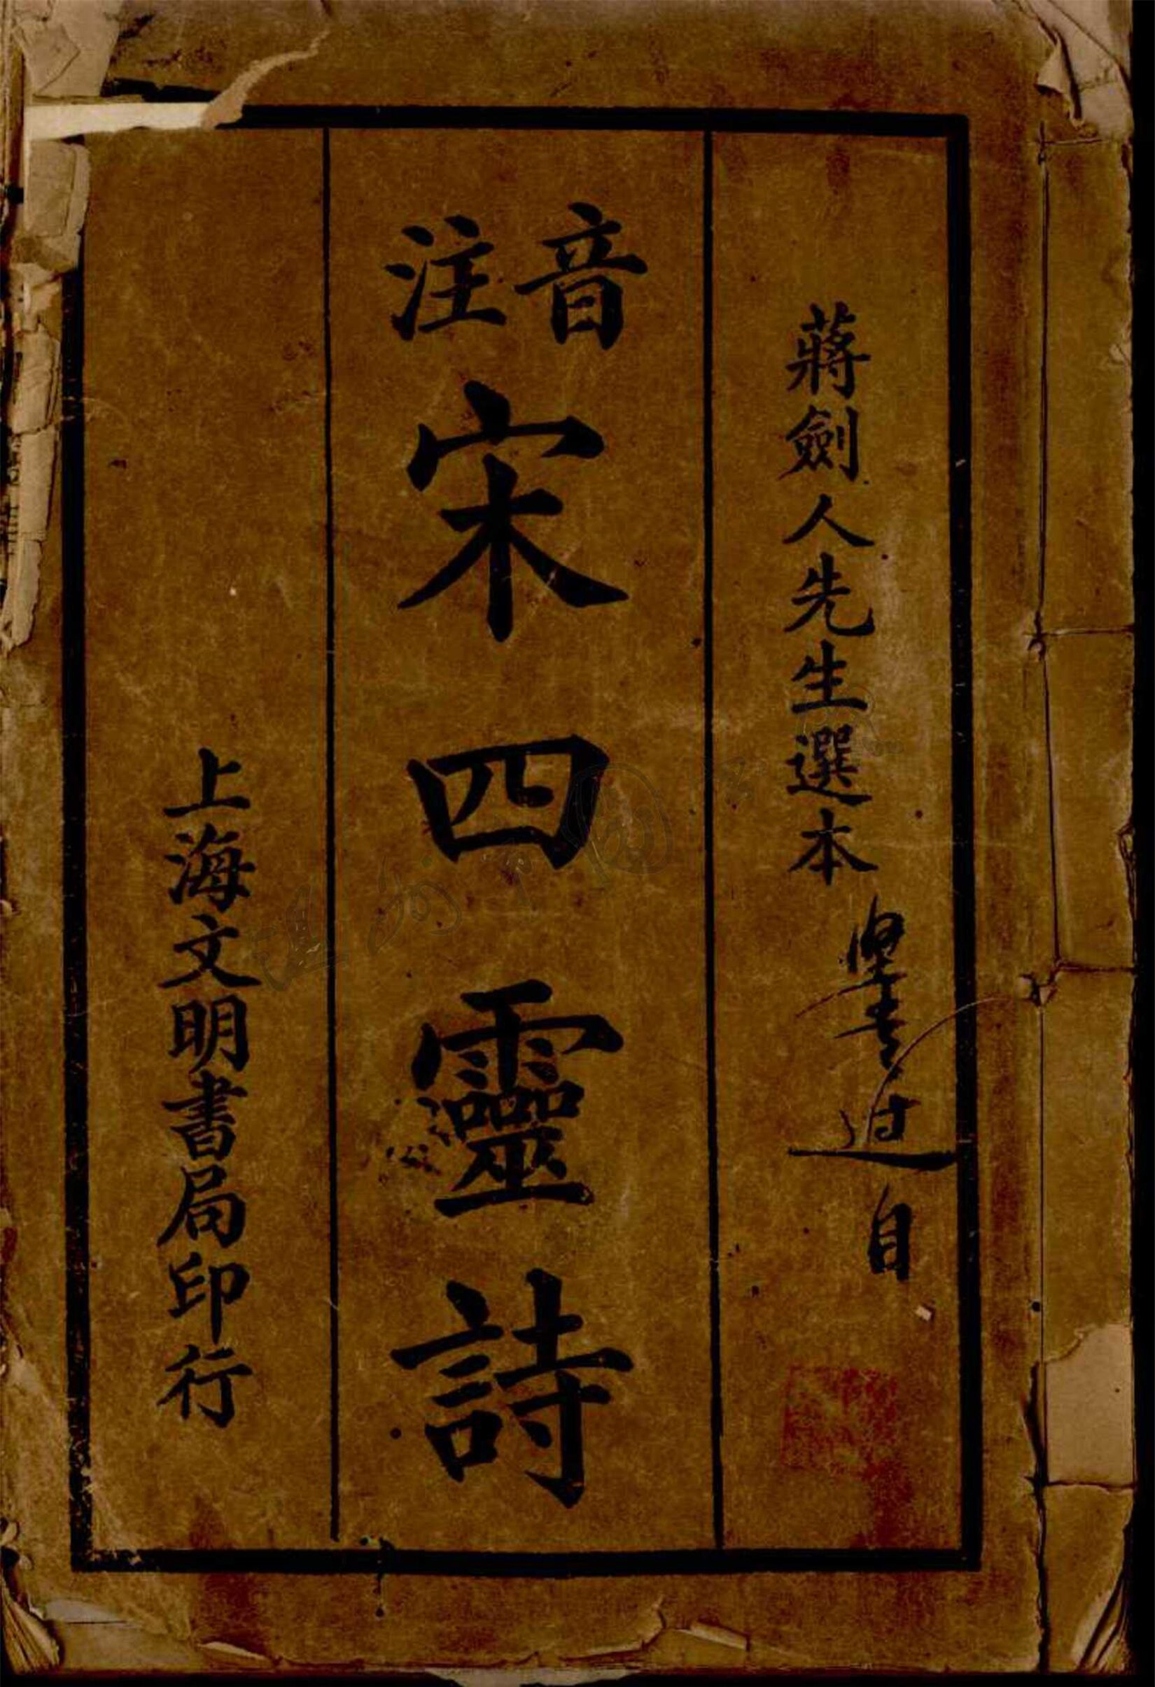 蔣劍人先生選本
音注
宋四靈詩
上海文明書局印行
自